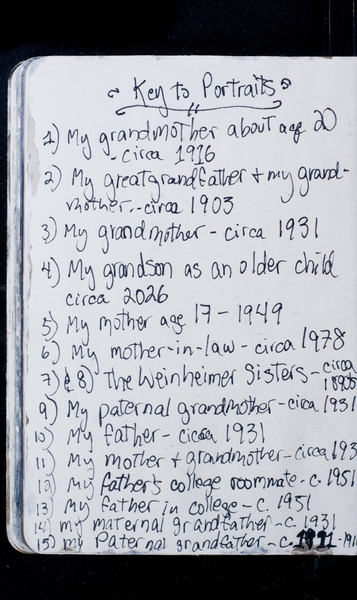 Key to Portraits
1) My grandmother about age 20
- circa 1916
2) My great grandfather + my grand-
mother - circa 1903
3) My grandmother - circa 1931
4) My grandson as an older child
circa 2026
5) My mother age 17 - 1949
6) My mother-in-law - circa 1978
7) & 8) The Weinheimer Sisters - circa
1890s
9) My paternal grandmother - circa 1931
10) My father - circa 1931
11) My mother + grandmother - circa 193
12) My father's college roommate - c. 1951
13) My father in college - c. 1951
14) my maternal grandfather - c. 1931
15) my Paternal grandfather - c.